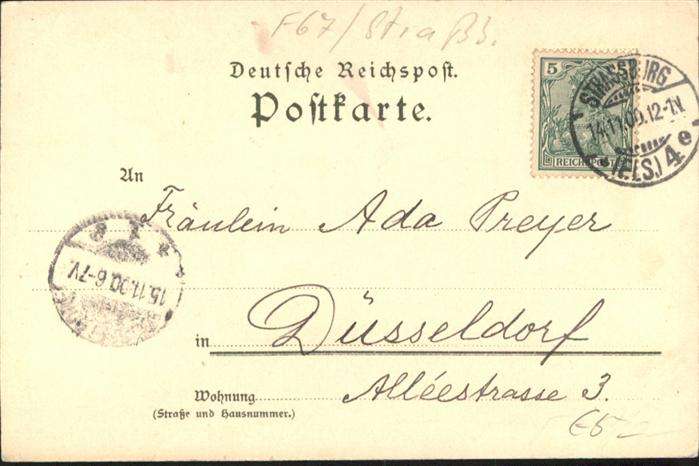 F67/Straßb.
Deutsche Reichspost.
Postkarte.
5
REICHSPOST
STRASSBURG
14.11.00.12-1N.
(ELS.) 4e
An
Fräulein Ada Preyer
15.11.00.6-7V.
in Düsseldorf
Wohnung Alléestrasse 3.
(Straße und Hausnummer.)
€5-